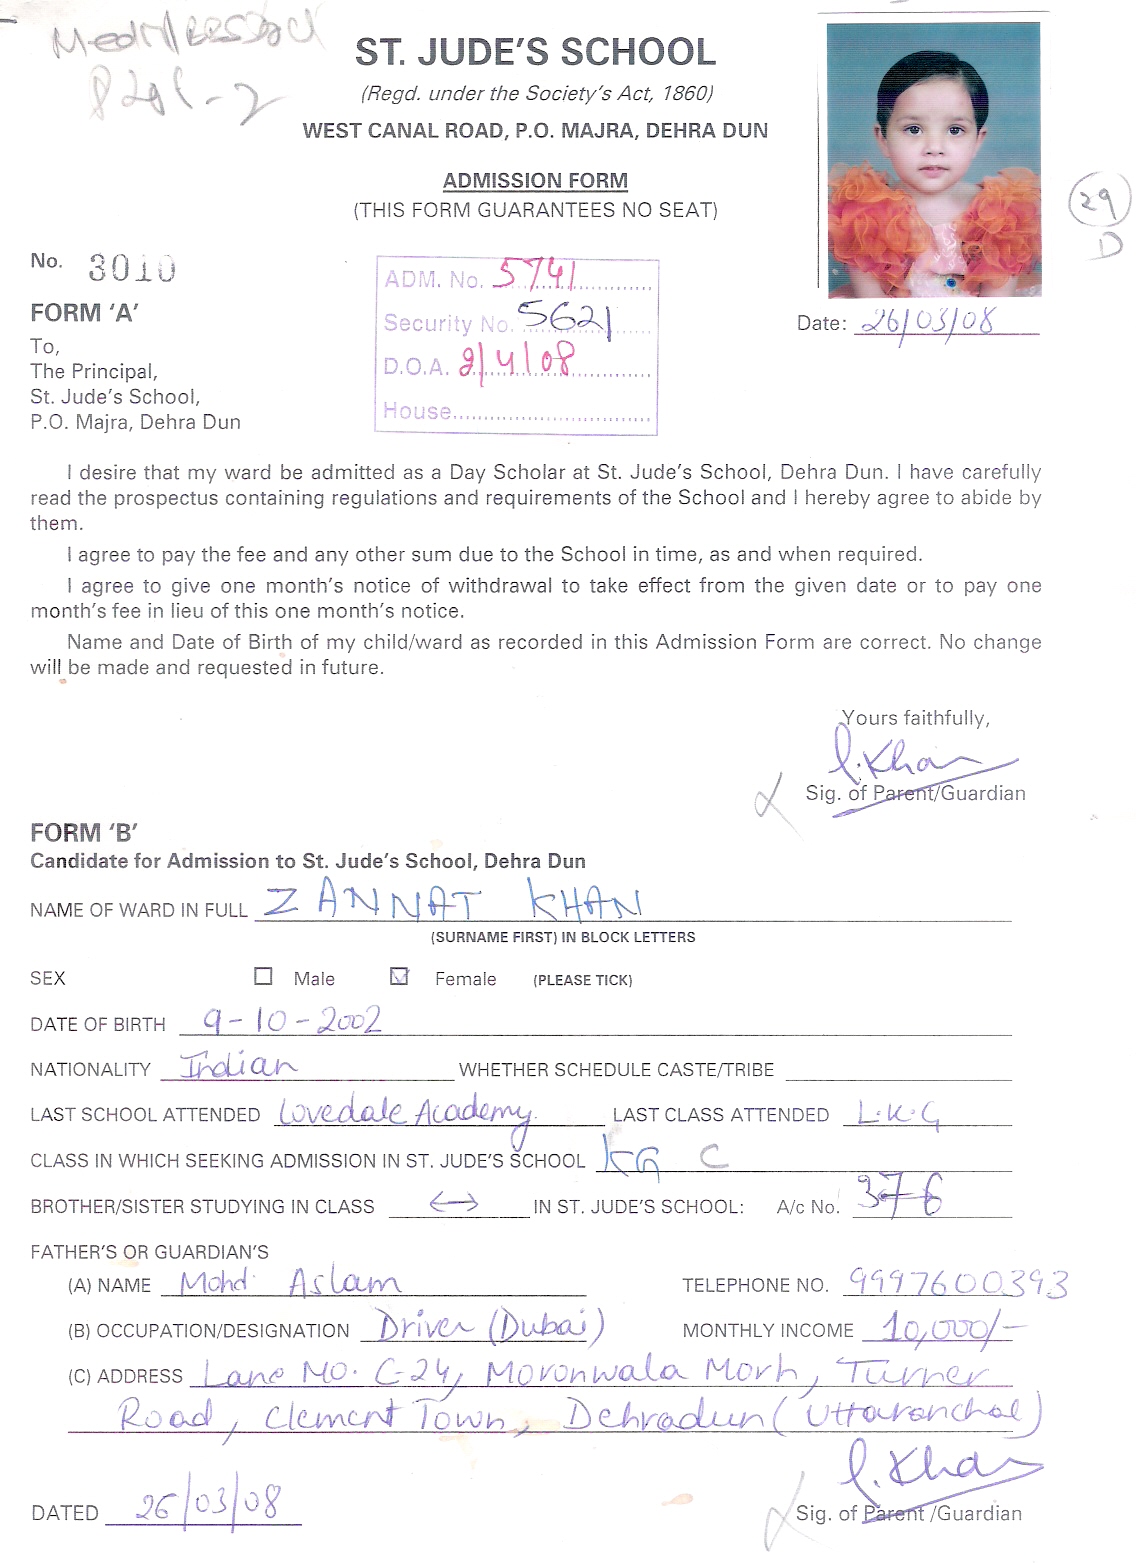 ST. JUDE'S SCHOOL
(Regd. under the Society's Act, 1860)
WEST CANAL ROAD, P.O. MAJRA, DEHRA DUN
ADMISSION FORM
(THIS FORM GUARANTEES NO SEAT)
29
D
No. 3010
ADM. No. 5741
Security No. 5621
D.O.A. 2/4/08
House
Date: 26/03/08
FORM 'A'
To,
The Principal,
St. Jude's School,
P.O. Majra, Dehra Dun
I desire that my ward be admitted as a Day Scholar at St. Jude's School, Dehra Dun. I have carefully
read the prospectus containing regulations and requirements of the School and I hereby agree to abide by
them.
I agree to pay the fee and any other sum due to the School in time, as and when required.
I agree to give one month's notice of withdrawal to take effect from the given date or to pay one
month's fee in lieu of this one month's notice.
Name and Date of Birth of my child/ward as recorded in this Admission Form are correct. No change
will be made and requested in future.
Yours faithfully,
Khan
Sig. of Parent/Guardian
FORM 'B'
Candidate for Admission to St. Jude's School, Dehra Dun
NAME OF WARD IN FULL ZANNAT KHAN
(SURNAME FIRST) IN BLOCK LETTERS
SEX Male Female (PLEASE TICK)
DATE OF BIRTH 9-10-2002
NATIONALITY Indian WHETHER SCHEDULE CASTE/TRIBE
LAST SCHOOL ATTENDED Lovedale Academy. LAST CLASS ATTENDED L.K.G
CLASS IN WHICH SEEKING ADMISSION IN ST. JUDE'S SCHOOL KG C
BROTHER/SISTER STUDYING IN CLASS IN ST. JUDE'S SCHOOL: A/c No. 376
FATHER'S OR GUARDIAN'S
(A) NAME Mohd. Aslam TELEPHONE NO. 9997600393
(B) OCCUPATION/DESIGNATION Driver (Dubai) MONTHLY INCOME 10,000/-
(C) ADDRESS Lane No. C-24, Moronwala Morh, Turner
Road, Clement Town, Dehradun (Uttaranchal)
Khan
DATED 26/03/08 Sig. of Parent /Guardian